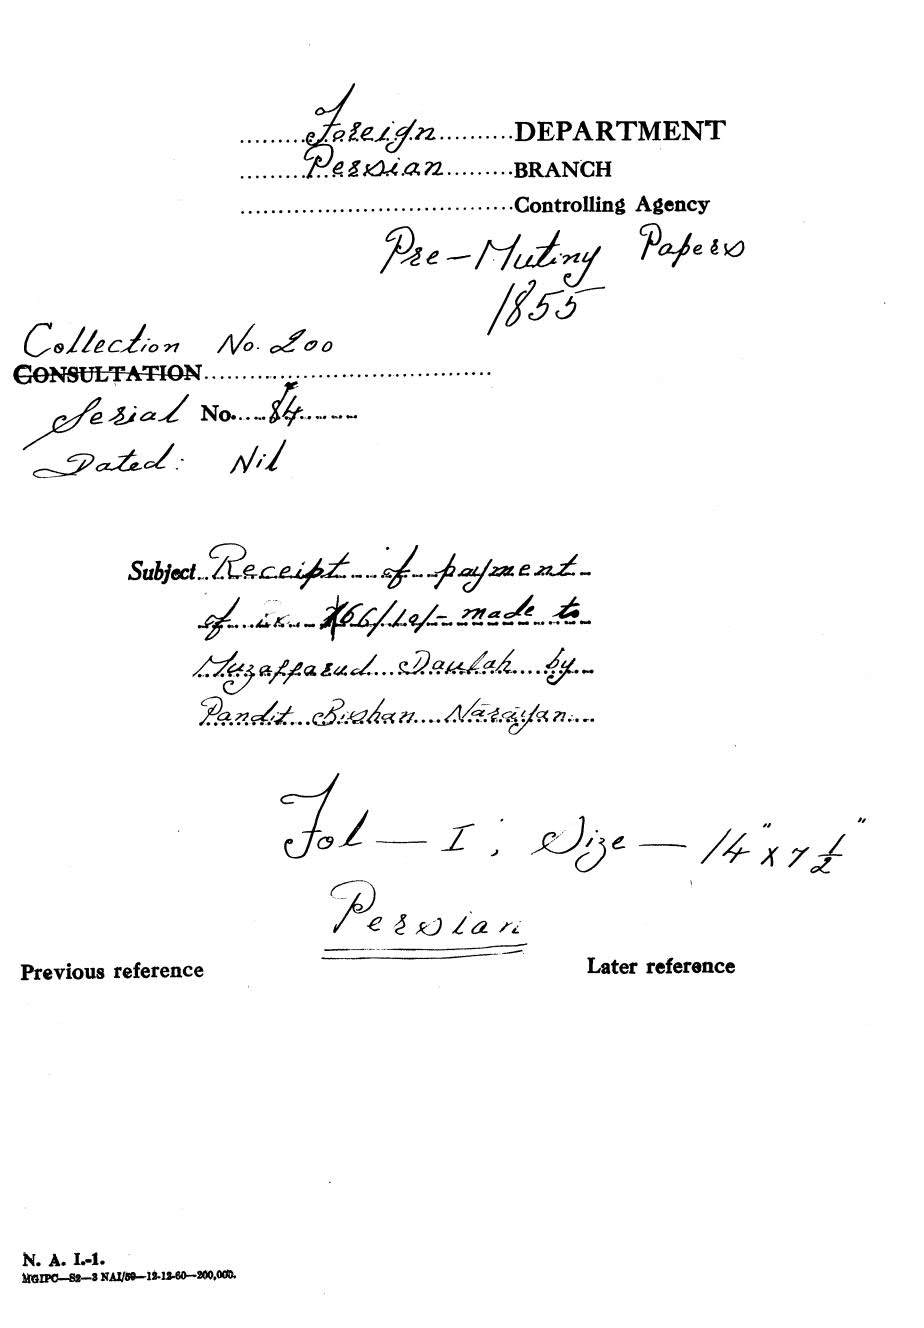 Foreign DEPARTMENT
Persian BRANCH
Controlling Agency
Pre-Mutiny Papers
1855
Collection No. 200
CONSULTATION
Serial No. 84
Dated: Nil
Subject Receipt of payment
of 66/10/- made to
Muzaffarud Daulah by
Pandit Bishan Narayan
Fol — I ; Size — 14" x 7 1/2"
Persian
Previous reference
Later reference
N. A. I.-1.
MGIPC—S2—3 NAI/59—12-12-60—200,000.